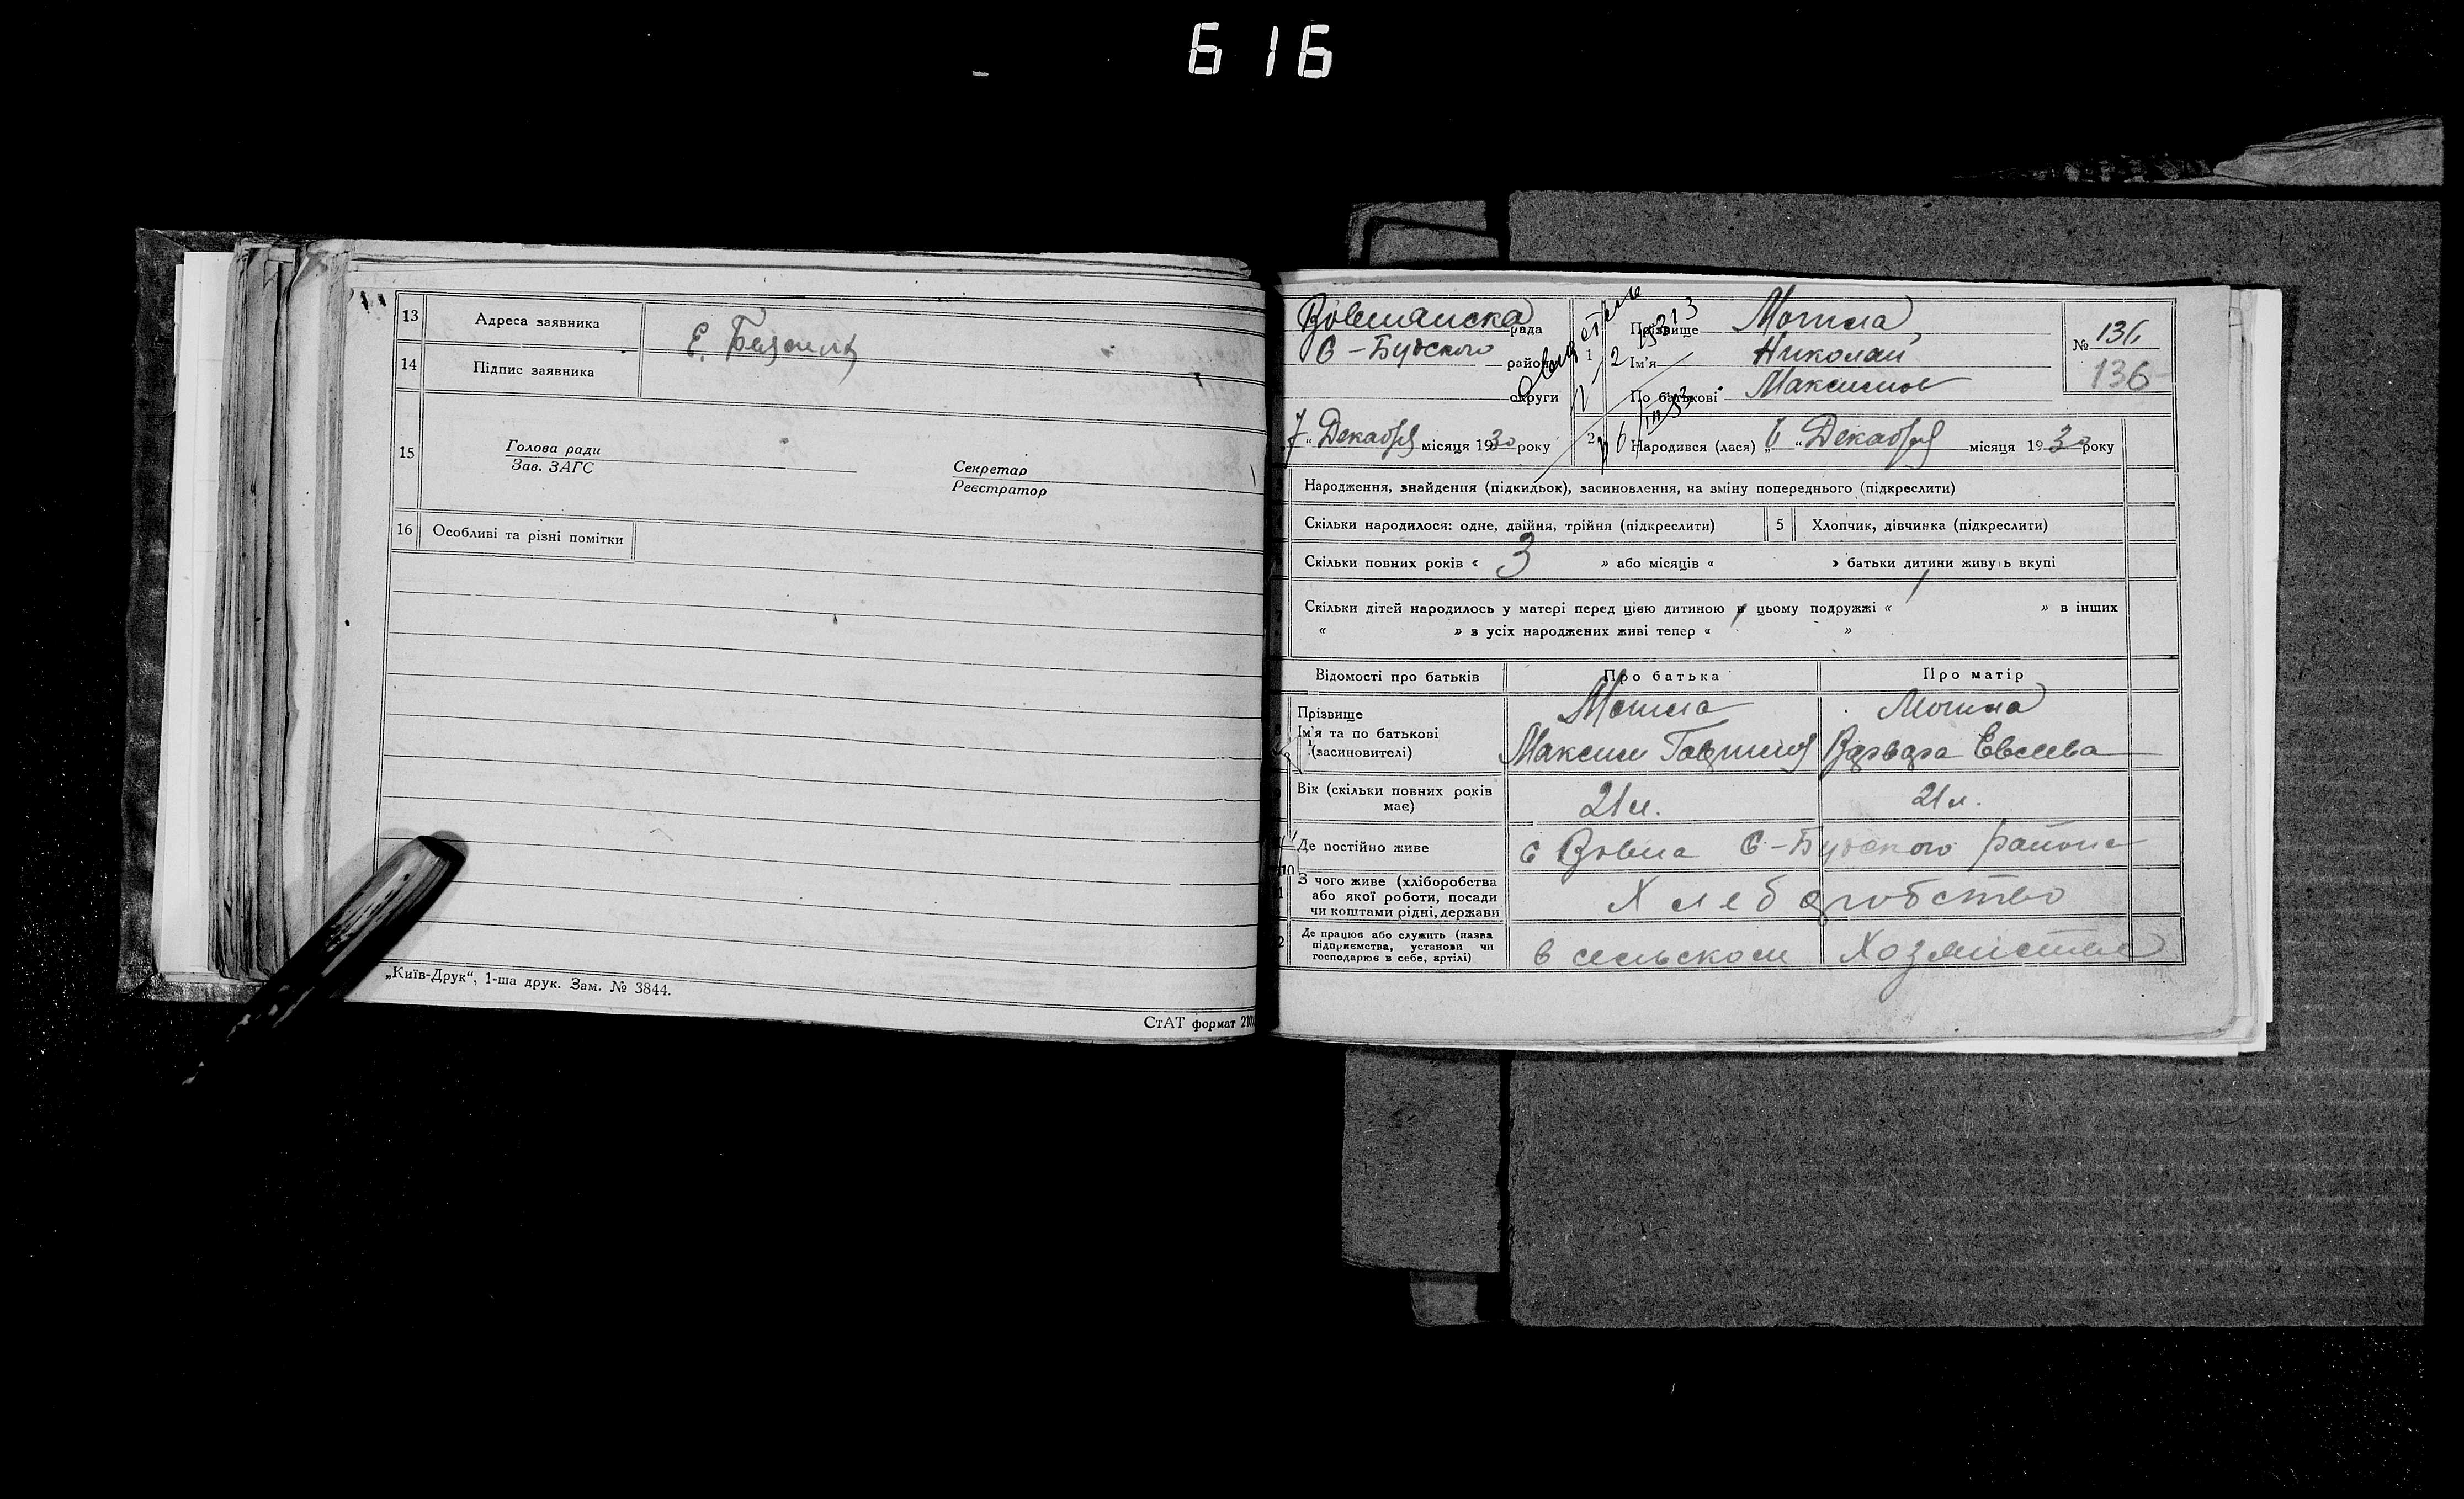 616
13 Адреса заявника
14 Підпис заявника
15 Голова ради
Зав. ЗАГС
Секретар
Реєстратор
16 Особливі та різні помітки
„Київ-Друк“, 1-ша друк. Зам. № 3844.
СтАТ формат 210
рада
С-Будского района
округи
7 „ Декабря місяця 1930 року
1 Прізвище
Ім'я Николай
По батькові Максимов
№ 136
136
2 Народився (лася) „ 6 „ Декабря місяця 1930 року
Народження, знайдення (підкидьок), засиновлення, на зміну попереднього (підкреслити)
Скільки народилося: одне, двійня, трійня (підкреслити) 5 Хлопчик, дівчинка (підкреслити)
Скільки повних років « 3 » або місяців « » батьки дитини живуть вкупі
Скільки дітей народилось у матері перед цією дитиною в цьому подружжі « 1 » в інших
« » з усіх народжених живі тепер « »
Відомості про батьків Про батька Про матір
Прізвище
Ім'я та по батькові Максим Варвара
(засиновителі)
Вік (скільки повних років має) 21 л. 21 л.
Де постійно живе с С-Будского района
10
З чого живе (хліборобства
або якої роботи, посади
чи коштами рідні, держави Хлеборобство
Де працює або служить (назва
підприємства, установи чи
господарює в себе, артілі) в сельском Хозяйстве